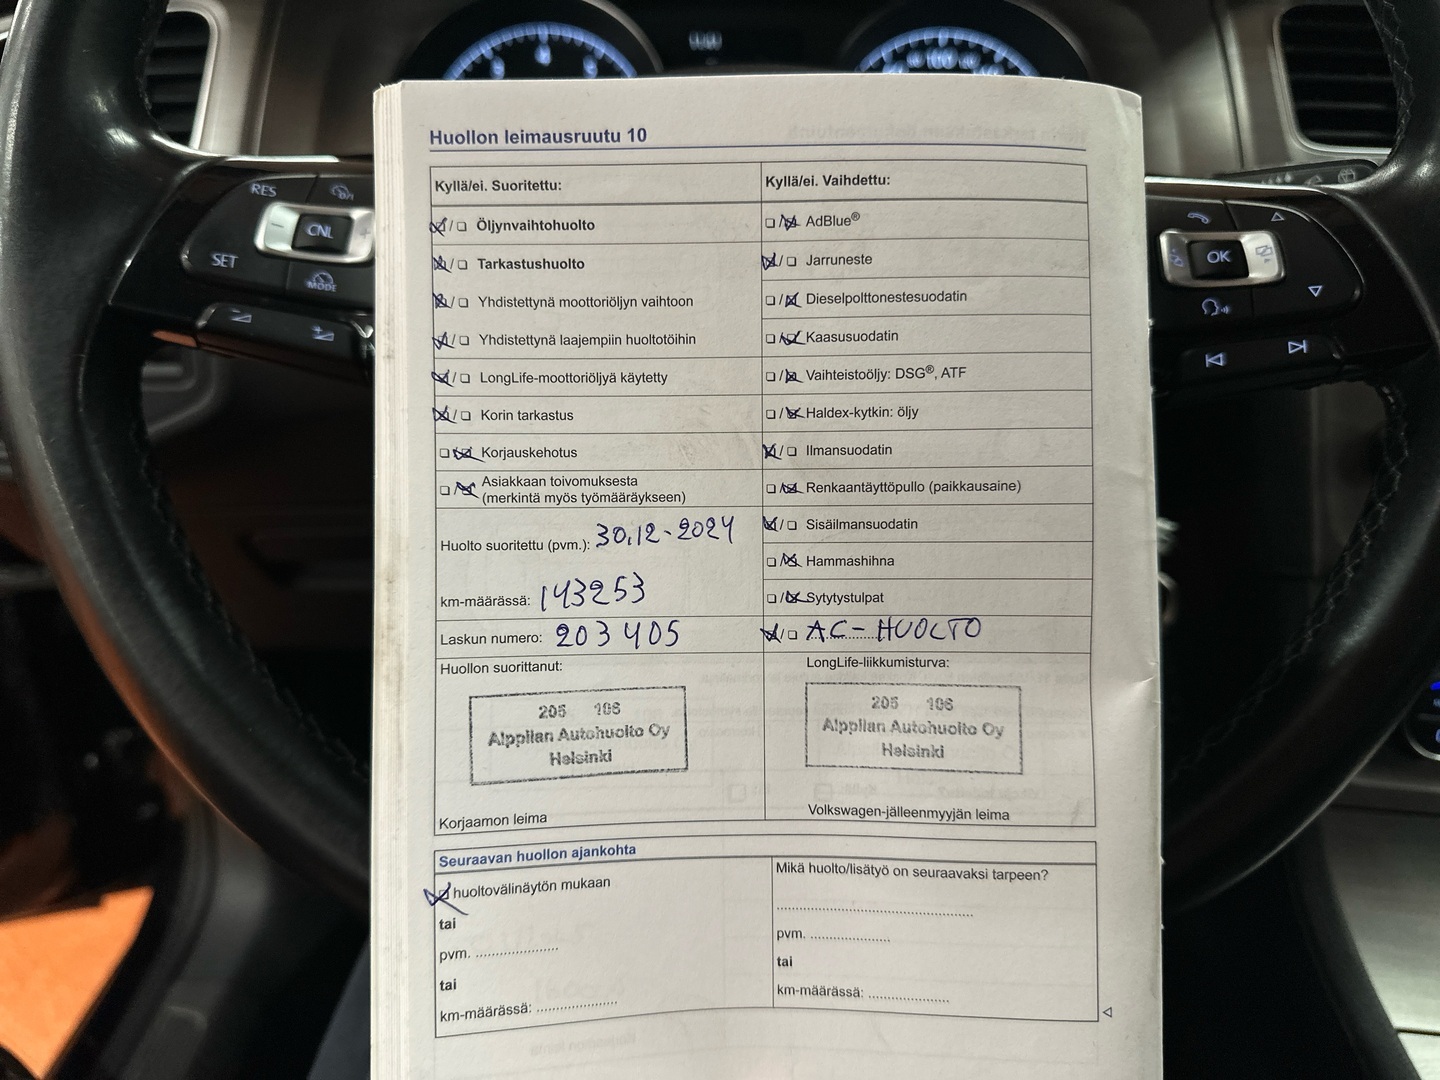 Huollon leimausruutu 10
Kyllä/ei. Suoritettu:
Öljynvaihtohuolto
Tarkastushuolto
Yhdistettynä moottoriöljyn vaihtoon
Yhdistettynä laajempiin huoltotöihin
LongLife-moottoriöljyä käytetty
Korin tarkastus
Korjauskehotus
Asiakkaan toivomuksesta
(merkintä myös työmääräykseen)
Huolto suoritettu (pvm.): 30.12-2024
km-määrässä: 143253
Laskun numero: 203405
Huollon suorittanut:
205 106
Alppilan Autohuolto Oy
Helsinki
Korjaamon leima
Kyllä/ei. Vaihdettu:
AdBlue®
Jarruneste
Dieselpolttonestesuodatin
Kaasusuodatin
Vaihteistoöljy: DSG®, ATF
Haldex-kytkin: öljy
Ilmansuodatin
Renkaantäyttöpullo (paikkausaine)
Sisäilmansuodatin
Hammashihna
Sytytystulpat
AC-HUOLTO
LongLife-liikkumisturva:
205 106
Alppilan Autohuolto Oy
Helsinki
Volkswagen-jälleenmyyjän leima
Seuraavan huollon ajankohta
huoltovälinäytön mukaan
tai
pvm. ..................
tai
km-määrässä: ..................
Mikä huolto/lisätyö on seuraavaksi tarpeen?
pvm. ..................
tai
km-määrässä: ..................
RES
CNL
SET
MODE
OK
100